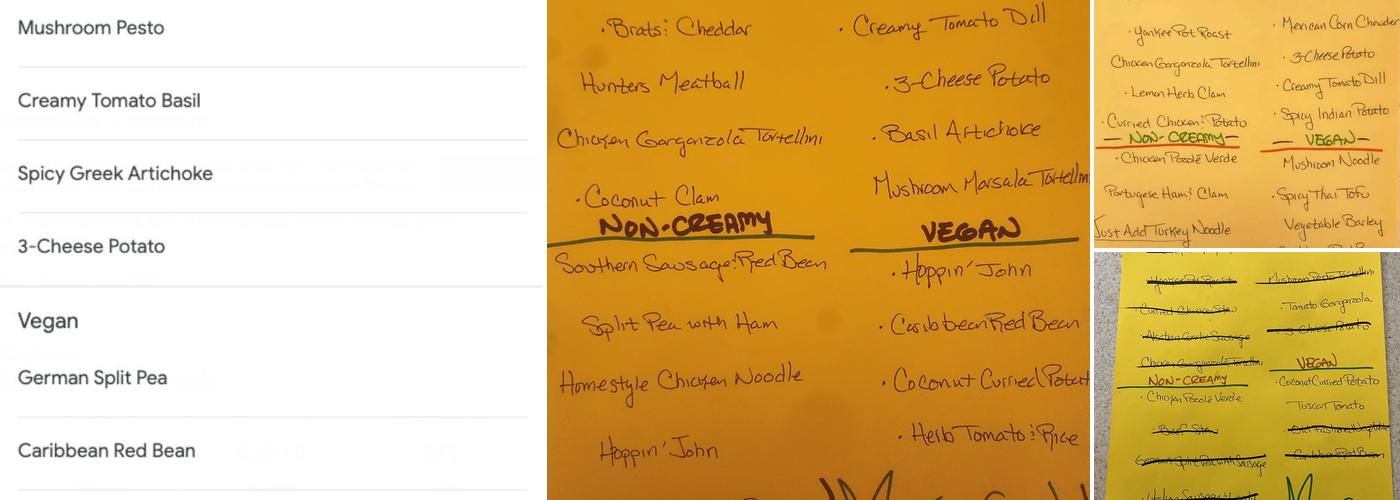 Mushroom Pesto
Creamy Tomato Basil
Spicy Greek Artichoke
3-Cheese Potato
Vegan
German Split Pea
Caribbean Red Bean
· Brats & Cheddar
Hunters Meatball
Chicken Gorgonzola Tortellini
· Coconut Clam
NON-CREAMY
Southern Sausage & Red Bean
Split Pea with Ham
Homestyle Chicken Noodle
Hoppin' John
· Creamy Tomato Dill
· 3-Cheese Potato
· Basil Artichoke
Mushroom Marsala Tortellini
VEGAN
· Hoppin' John
· Caribbean Red Bean
· Coconut Curried Potat
· Herb Tomato & Rice
· Yankee Pot Roast
Chicken Gorgonzola Tortellini
· Lemon Herb Clam
· Curried Chicken & Potato
— NON-CREAMY —
· Chicken Pozolé Verde
Portugese Ham & Clam
Just Add Turkey Noodle
· Mexican Corn Chowder
· 3-Cheese Potato
· Creamy Tomato Dill
· Spicy Indian Potato
— VEGAN —
Mushroom Noodle
· Spicy Thai Tofu
Vegetable Barley
Yankee Pot Roast
· Curried Chicken Stew
Alsatian Garlic Sausage
Chicken Gorgonzola Tortellini
NON-CREAMY
· Chicken Pozolé Verde
· Beef Stew
German Split Pea with Sausage
Italian Sausage
Mushroom Pesto Tortellini
· Tomato Gorgonzola
· 3 Cheese Potato
VEGAN
· Coconut Curried Potato
Tuscan Tomato
Old Fashioned Vegetable
· Caribbean Red Bean